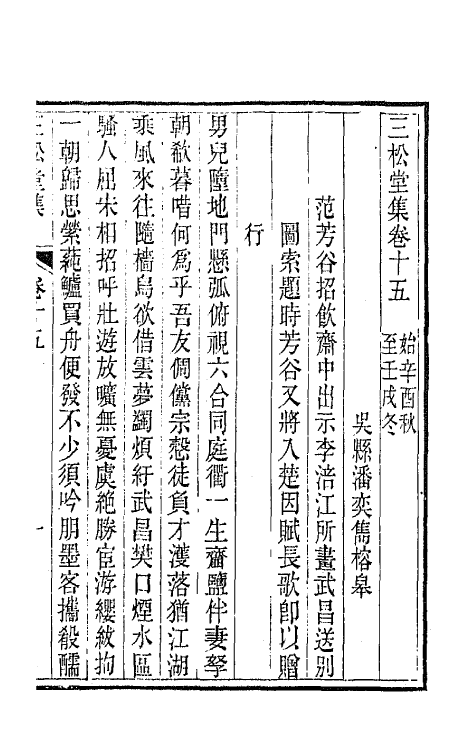 三松堂集卷十五
始辛酉秋
至壬戌冬
吳縣潘奕雋榕皋
范芳谷招飲齋中出示李涪江所畫武昌送別
圖索題時芳谷又將入楚因賦長歌卽以贈
行
男兒墮地門懸弧俯視六合同庭衢一生齏鹽伴妻孥
朝欷暮唶何爲乎吾友倜儻宗慤徒負才濩落猶江湖
乘風來往隨檣烏欲借雲夢蠲煩紆武昌樊口煙水區
騷人屈宋相招呼壯遊放曠無憂虞絶勝宦游纓紱拘
一朝歸思縈蒓鱸買舟便發不少須吟朋墨客攜殽醹
三松堂集
卷十五
一